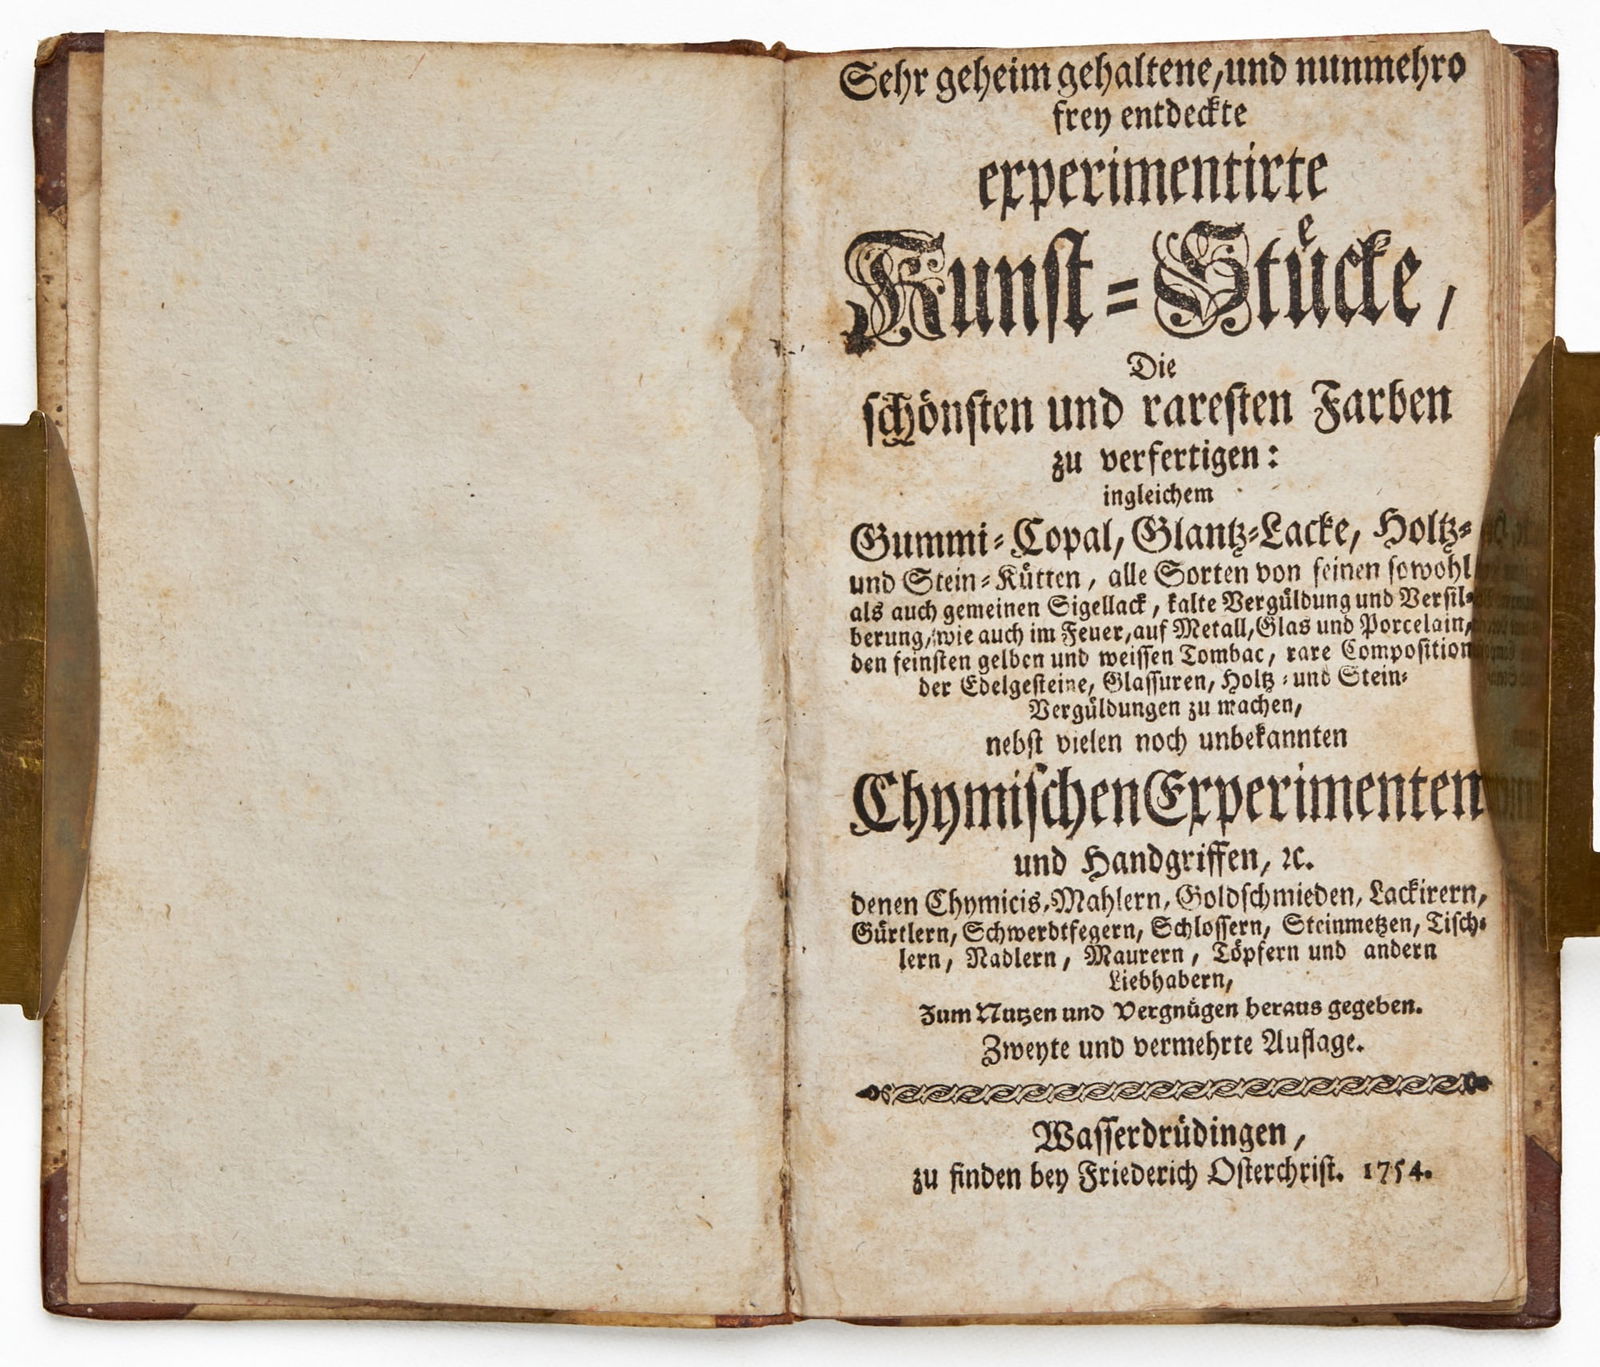 Sehr geheim gehaltene, und nunmehro
frey entdeckte
experimentirte
Kunst-Stuͤcke,
Die
schönsten und raresten Farben
zu verfertigen:
ingleichem
Gummi-Copal, Glantz-Lacke, Holtz-
und Stein-Kütten, alle Sorten von feinen sowohl
als auch gemeinen Sigellack, kalte Vergüldung und Versil-
berung, wie auch im Feuer, auf Metall, Glas und Porcelain,
den feinsten gelben und weissen Tombac, rare Composition
der Edelgesteine, Glassuren, Holtz- und Stein-
Vergüldungen zu machen,
nebst vielen noch unbekannten
Chymischen Experimenten
und Handgriffen, ꝛc.
denen Chymicis, Mahlern, Goldschmieden, Lackirern,
Gürtlern, Schwerdtfegern, Schlossern, Steinmetzen, Tisch-
lern, Nadlern, Maurern, Töpfern und andern
Liebhabern,
Zum Nutzen und Vergnügen heraus gegeben.
Zweyte und vermehrte Auflage.
Wasserdrüdingen,
zu finden bey Friederich Osterchrist. 1754.